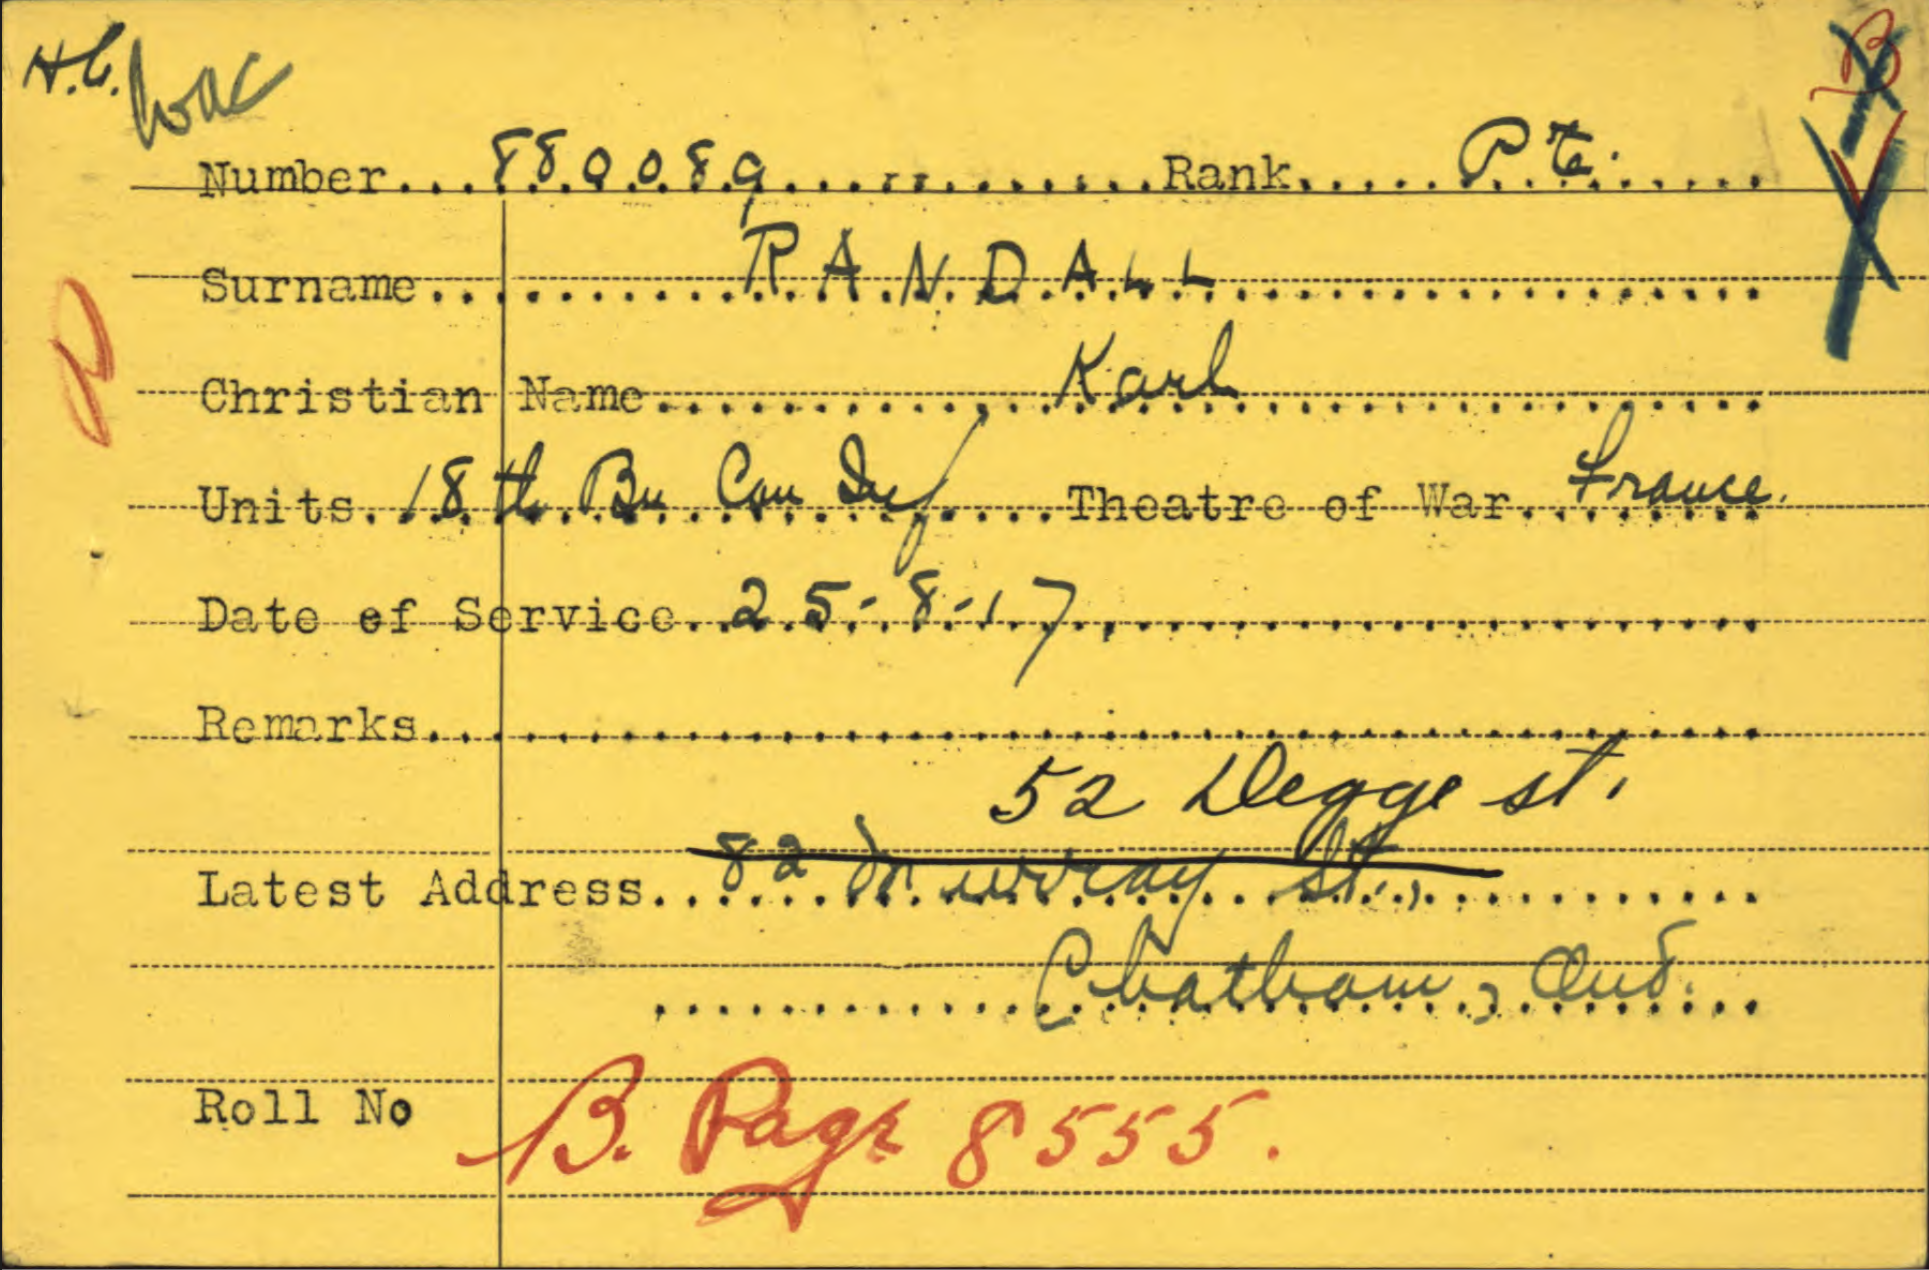 H.C. WAC
B
Number...880089...Rank...Pte.
Surname...RANDALL
Christian Name...Karl
Units.18th Bn Can Inf...Theatre of War...France.
Date of Service..25-8-17
Remarks
52 Degge st.
Latest Address...82 Murray St.,
Chatham, Ont.
Roll No B. Page 8555.